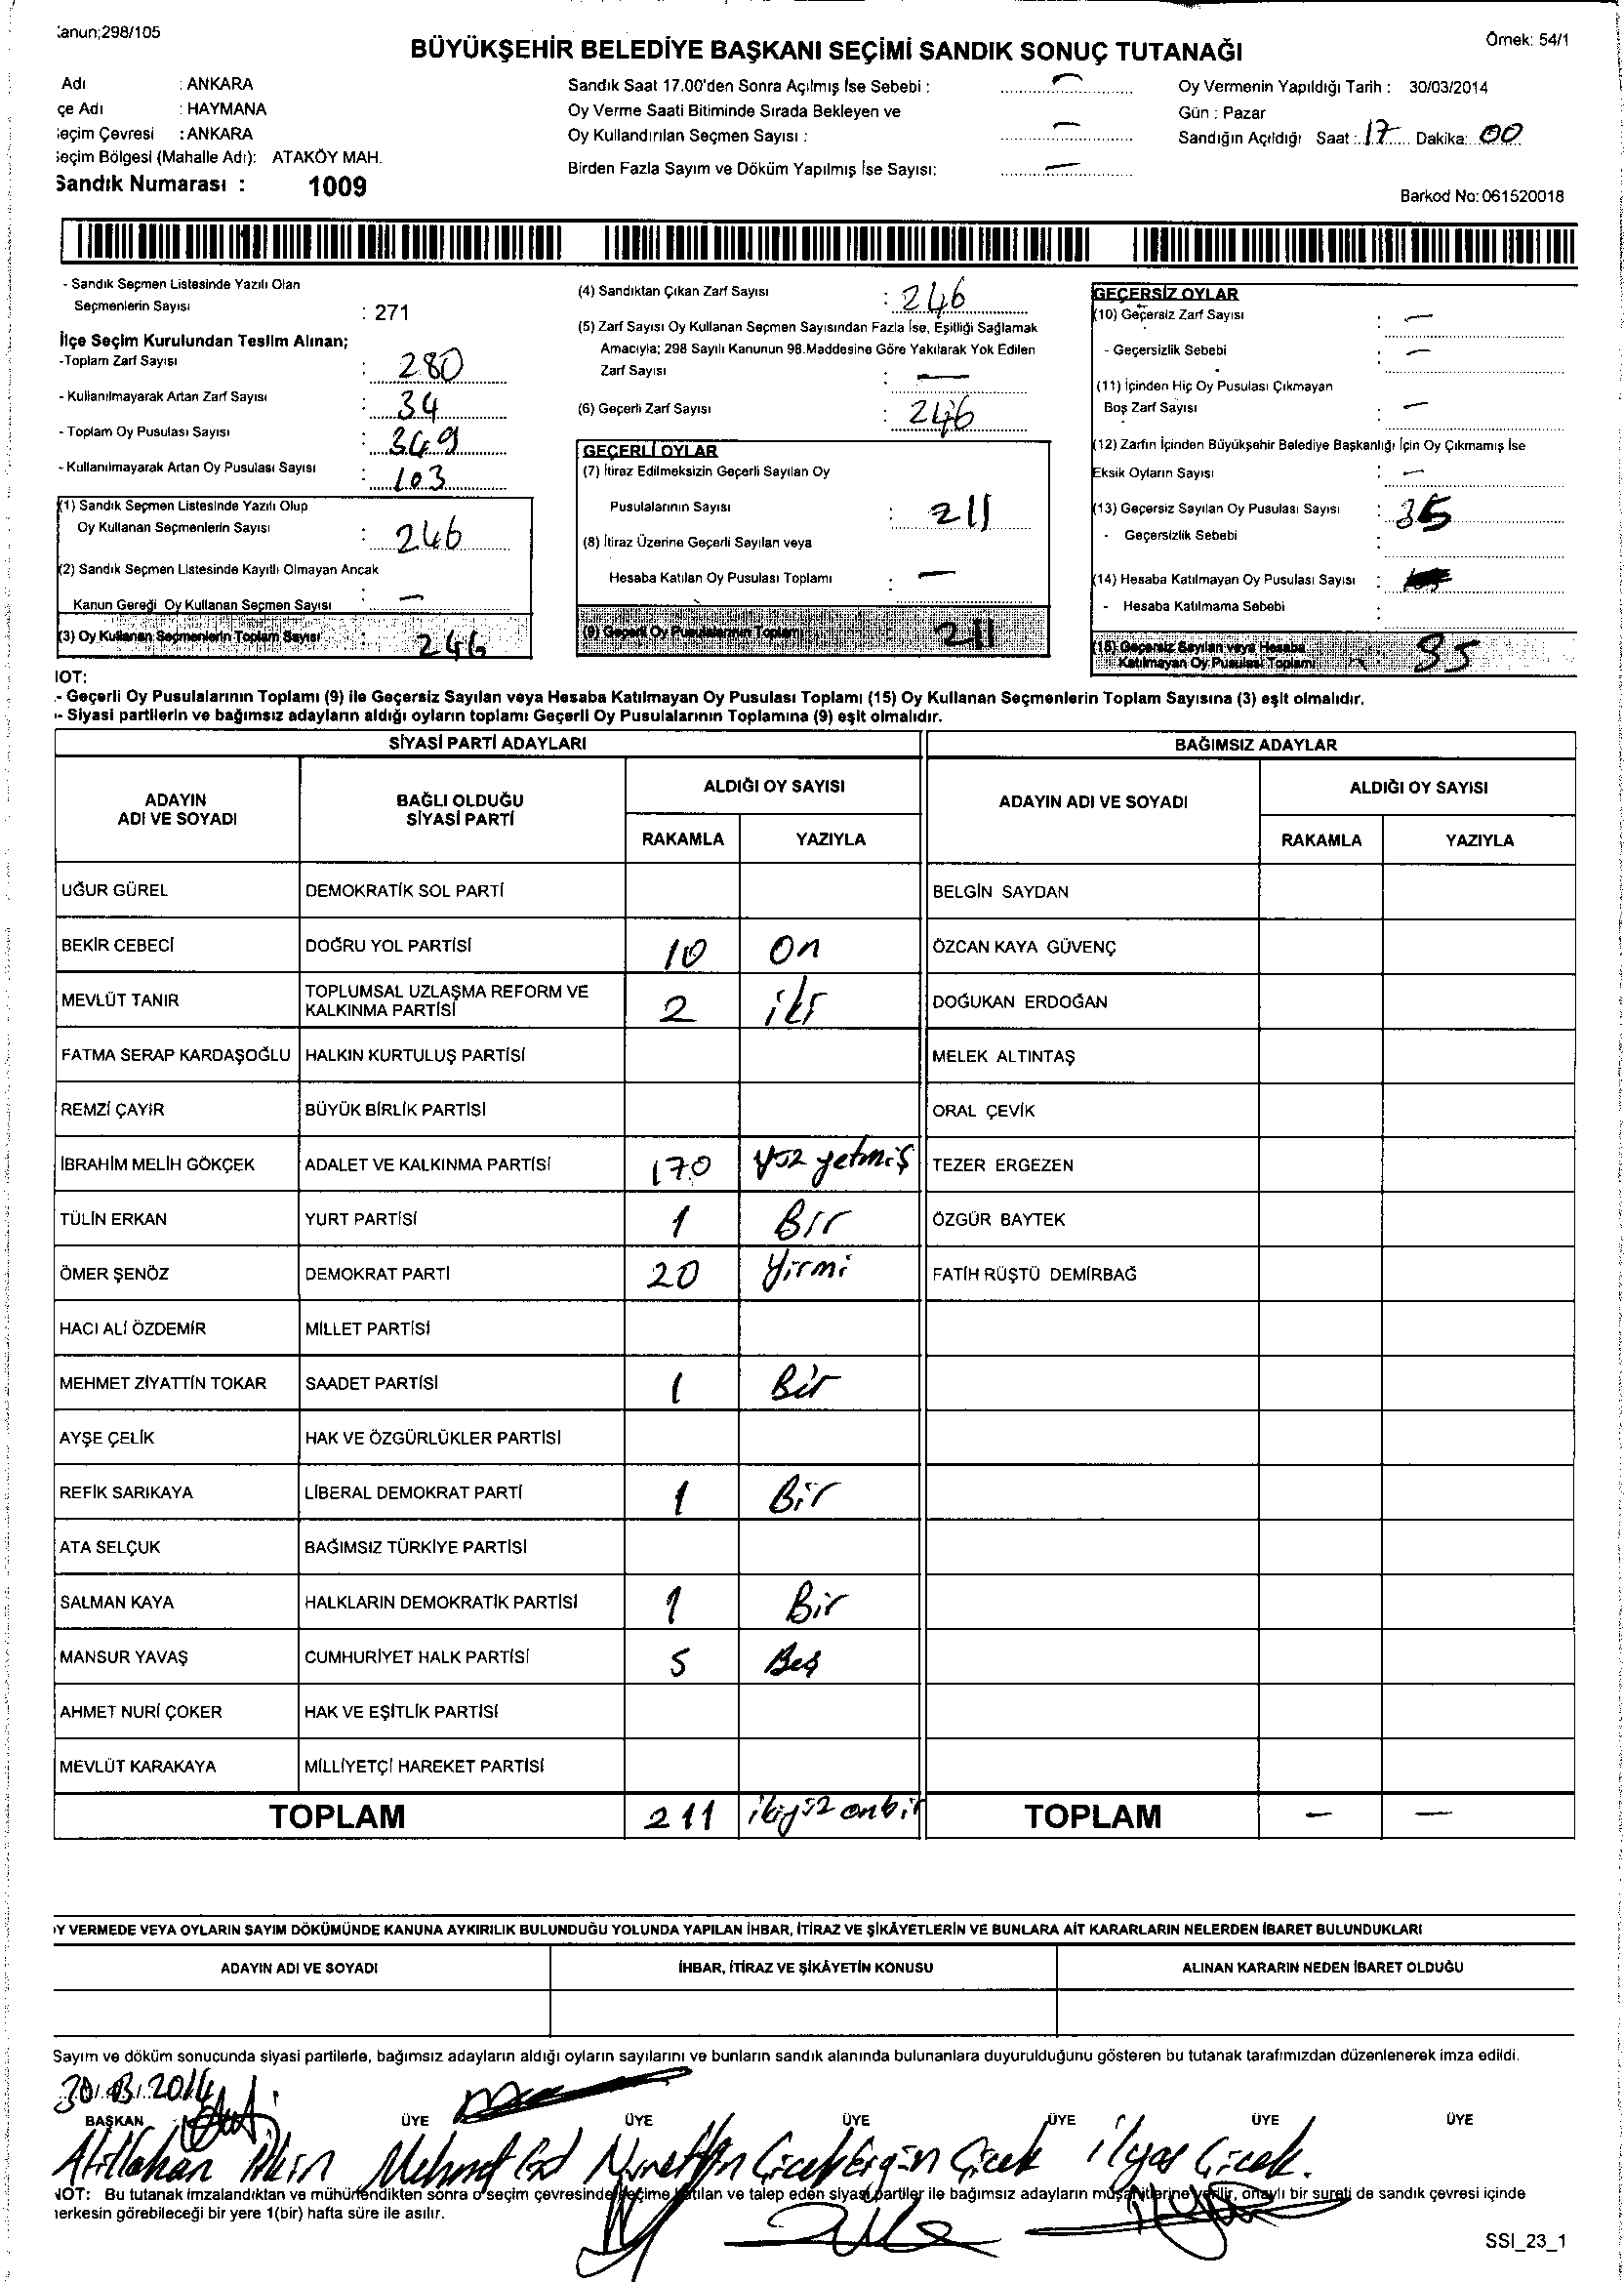 Kanun;298/105
Örnek: 54/1
BÜYÜKŞEHİR BELEDİYE BAŞKANI SEÇİMİ SANDIK SONUÇ TUTANAĞI
Adı : ANKARA
çe Adı : HAYMANA
eçim Çevresi : ANKARA
eçim Bölgesi (Mahalle Adı): ATAKÖY MAH.
Sandık Numarası : 1009
Sandık Saat 17.00'den Sonra Açılmış İse Sebebi : —
Oy Verme Saati Bitiminde Sırada Bekleyen ve
Oy Kullandırılan Seçmen Sayısı : —
Birden Fazla Sayım ve Döküm Yapılmış İse Sayısı: —
Oy Vermenin Yapıldığı Tarih : 30/03/2014
Gün : Pazar
Sandığın Açıldığı Saat : 17 Dakika: 00
Barkod No: 061520018
- Sandık Seçmen Listesinde Yazılı Olan
Seçmenlerin Sayısı : 271
İlçe Seçim Kurulundan Teslim Alınan;
-Toplam Zarf Sayısı : 280
- Kullanılmayarak Artan Zarf Sayısı : 34
- Toplam Oy Pusulası Sayısı : 349
- Kullanılmayarak Artan Oy Pusulası Sayısı : 103
(1) Sandık Seçmen Listesinde Yazılı Olup
Oy Kullanan Seçmenlerin Sayısı : 246
(2) Sandık Seçmen Listesinde Kayıtlı Olmayan Ancak
Kanun Gereği Oy Kullanan Seçmen Sayısı : —
(3) Oy Kullanan Seçmenlerin Toplam Sayısı : 246
(4) Sandıktan Çıkan Zarf Sayısı : 246
(5) Zarf Sayısı Oy Kullanan Seçmen Sayısından Fazla İse, Eşitliği Sağlamak
Amacıyla; 298 Sayılı Kanunun 98.Maddesine Göre Yakılarak Yok Edilen
Zarf Sayısı : —
(6) Geçerli Zarf Sayısı : 246
GEÇERLİ OYLAR
(7) İtiraz Edilmeksizin Geçerli Sayılan Oy
Pusulalarının Sayısı : 211
(8) İtiraz Üzerine Geçerli Sayılan veya
Hesaba Katılan Oy Pusulası Toplamı : —
(9) Geçerli Oy Pusulalarının Toplamı 211
GEÇERSİZ OYLAR
(10) Geçersiz Zarf Sayısı : —
- Geçersizlik Sebebi : —
(11) İçinden Hiç Oy Pusulası Çıkmayan
Boş Zarf Sayısı : —
(12) Zarfın İçinden Büyükşehir Belediye Başkanlığı İçin Oy Çıkmamış İse
Eksik Oyların Sayısı : —
(13) Geçersiz Sayılan Oy Pusulası Sayısı : 35
- Geçersizlik Sebebi :
(14) Hesaba Katılmayan Oy Pusulası Sayısı :
- Hesaba Katılmama Sebebi :
(15) Geçersiz Sayılan veya Hesaba
Katılmayan Oy Pusulası Toplamı 35
NOT:
- Geçerli Oy Pusulalarının Toplamı (9) ile Geçersiz Sayılan veya Hesaba Katılmayan Oy Pusulası Toplamı (15) Oy Kullanan Seçmenlerin Toplam Sayısına (3) eşit olmalıdır.
- Siyasi partilerin ve bağımsız adayların aldığı oyların toplamı Geçerli Oy Pusulalarının Toplamına (9) eşit olmalıdır.
SİYASİ PARTİ ADAYLARI BAĞIMSIZ ADAYLAR
ADAYIN ADI VE SOYADI BAĞLI OLDUĞU SİYASİ PARTİ ALDIĞI OY SAYISI ADAYIN ADI VE SOYADI ALDIĞI OY SAYISI
RAKAMLA YAZIYLA RAKAMLA YAZIYLA
UĞUR GÜREL DEMOKRATİK SOL PARTİ BELGİN SAYDAN
BEKİR CEBECİ DOĞRU YOL PARTİSİ 10 On ÖZCAN KAYA GÜVENÇ
MEVLÜT TANIR TOPLUMSAL UZLAŞMA REFORM VE KALKINMA PARTİSİ 2 iki DOĞUKAN ERDOĞAN
FATMA SERAP KARDAŞOĞLU HALKIN KURTULUŞ PARTİSİ MELEK ALTINTAŞ
REMZİ ÇAYIR BÜYÜK BİRLİK PARTİSİ ORAL ÇEVİK
İBRAHİM MELİH GÖKÇEK ADALET VE KALKINMA PARTİSİ 170 yüz yetmiş TEZER ERGEZEN
TÜLİN ERKAN YURT PARTİSİ 1 Bir ÖZGÜR BAYTEK
ÖMER ŞENÖZ DEMOKRAT PARTİ 20 Yirmi FATİH RÜŞTÜ DEMİRBAĞ
HACI ALİ ÖZDEMİR MİLLET PARTİSİ
MEHMET ZİYATTİN TOKAR SAADET PARTİSİ 1 Bir
AYŞE ÇELİK HAK VE ÖZGÜRLÜKLER PARTİSİ
REFİK SARIKAYA LİBERAL DEMOKRAT PARTİ 1 Bir
ATA SELÇUK BAĞIMSIZ TÜRKİYE PARTİSİ
SALMAN KAYA HALKLARIN DEMOKRATİK PARTİSİ 1 Bir
MANSUR YAVAŞ CUMHURİYET HALK PARTİSİ 5 Beş
AHMET NURİ ÇOKER HAK VE EŞİTLİK PARTİSİ
MEVLÜT KARAKAYA MİLLİYETÇİ HAREKET PARTİSİ
TOPLAM 211 ikiyüz onbir TOPLAM — —
OY VERMEDE VEYA OYLARIN SAYIM DÖKÜMÜNDE KANUNA AYKIRILIK BULUNDUĞU YOLUNDA YAPILAN İHBAR, İTİRAZ VE ŞİKÂYETLERİN VE BUNLARA AİT KARARLARIN NELERDEN İBARET BULUNDUKLARI
ADAYIN ADI VE SOYADI İHBAR, İTİRAZ VE ŞİKÂYETİN KONUSU ALINAN KARARIN NEDEN İBARET OLDUĞU
Sayım ve döküm sonucunda siyasi partilerle, bağımsız adayların aldığı oyların sayılarını ve bunların sandık alanında bulunanlara duyurulduğunu gösteren bu tutanak tarafımızdan düzenlenerek imza edildi.
30.03.2014
BAŞKAN ÜYE ÜYE ÜYE ÜYE ÜYE ÜYE
Atillahan Mehmet Nurettin Çiçek Ergin Çiçek ilyas Çiçek.
NOT: Bu tutanak imzalandıktan ve mühürlendikten sonra o seçim çevresinde seçime katılan ve talep eden siyasi partiler ile bağımsız adayların müşahitlerine verilir, onaylı bir sureti de sandık çevresi içinde
herkesin görebileceği bir yere 1(bir) hafta süre ile asılır.
SSI_23_1